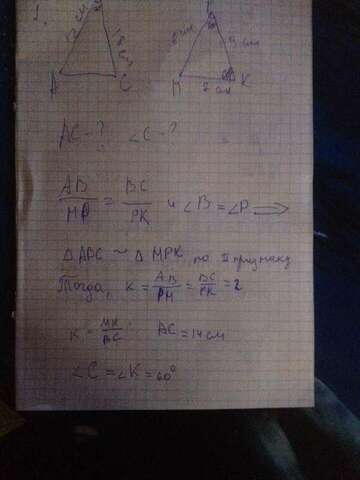 1.
12 см
18 см
A
C
P
9 см
M
K
7 см
AC - ? ∠C - ?
AB/MP = BC/PK и ∠B = ∠P ⟹
△ABC ~ △MPK по II признаку
Тогда, K = AB/PM = BC/PK = 2
K = MK/AC AC = 14 см
∠C = ∠K = 60°